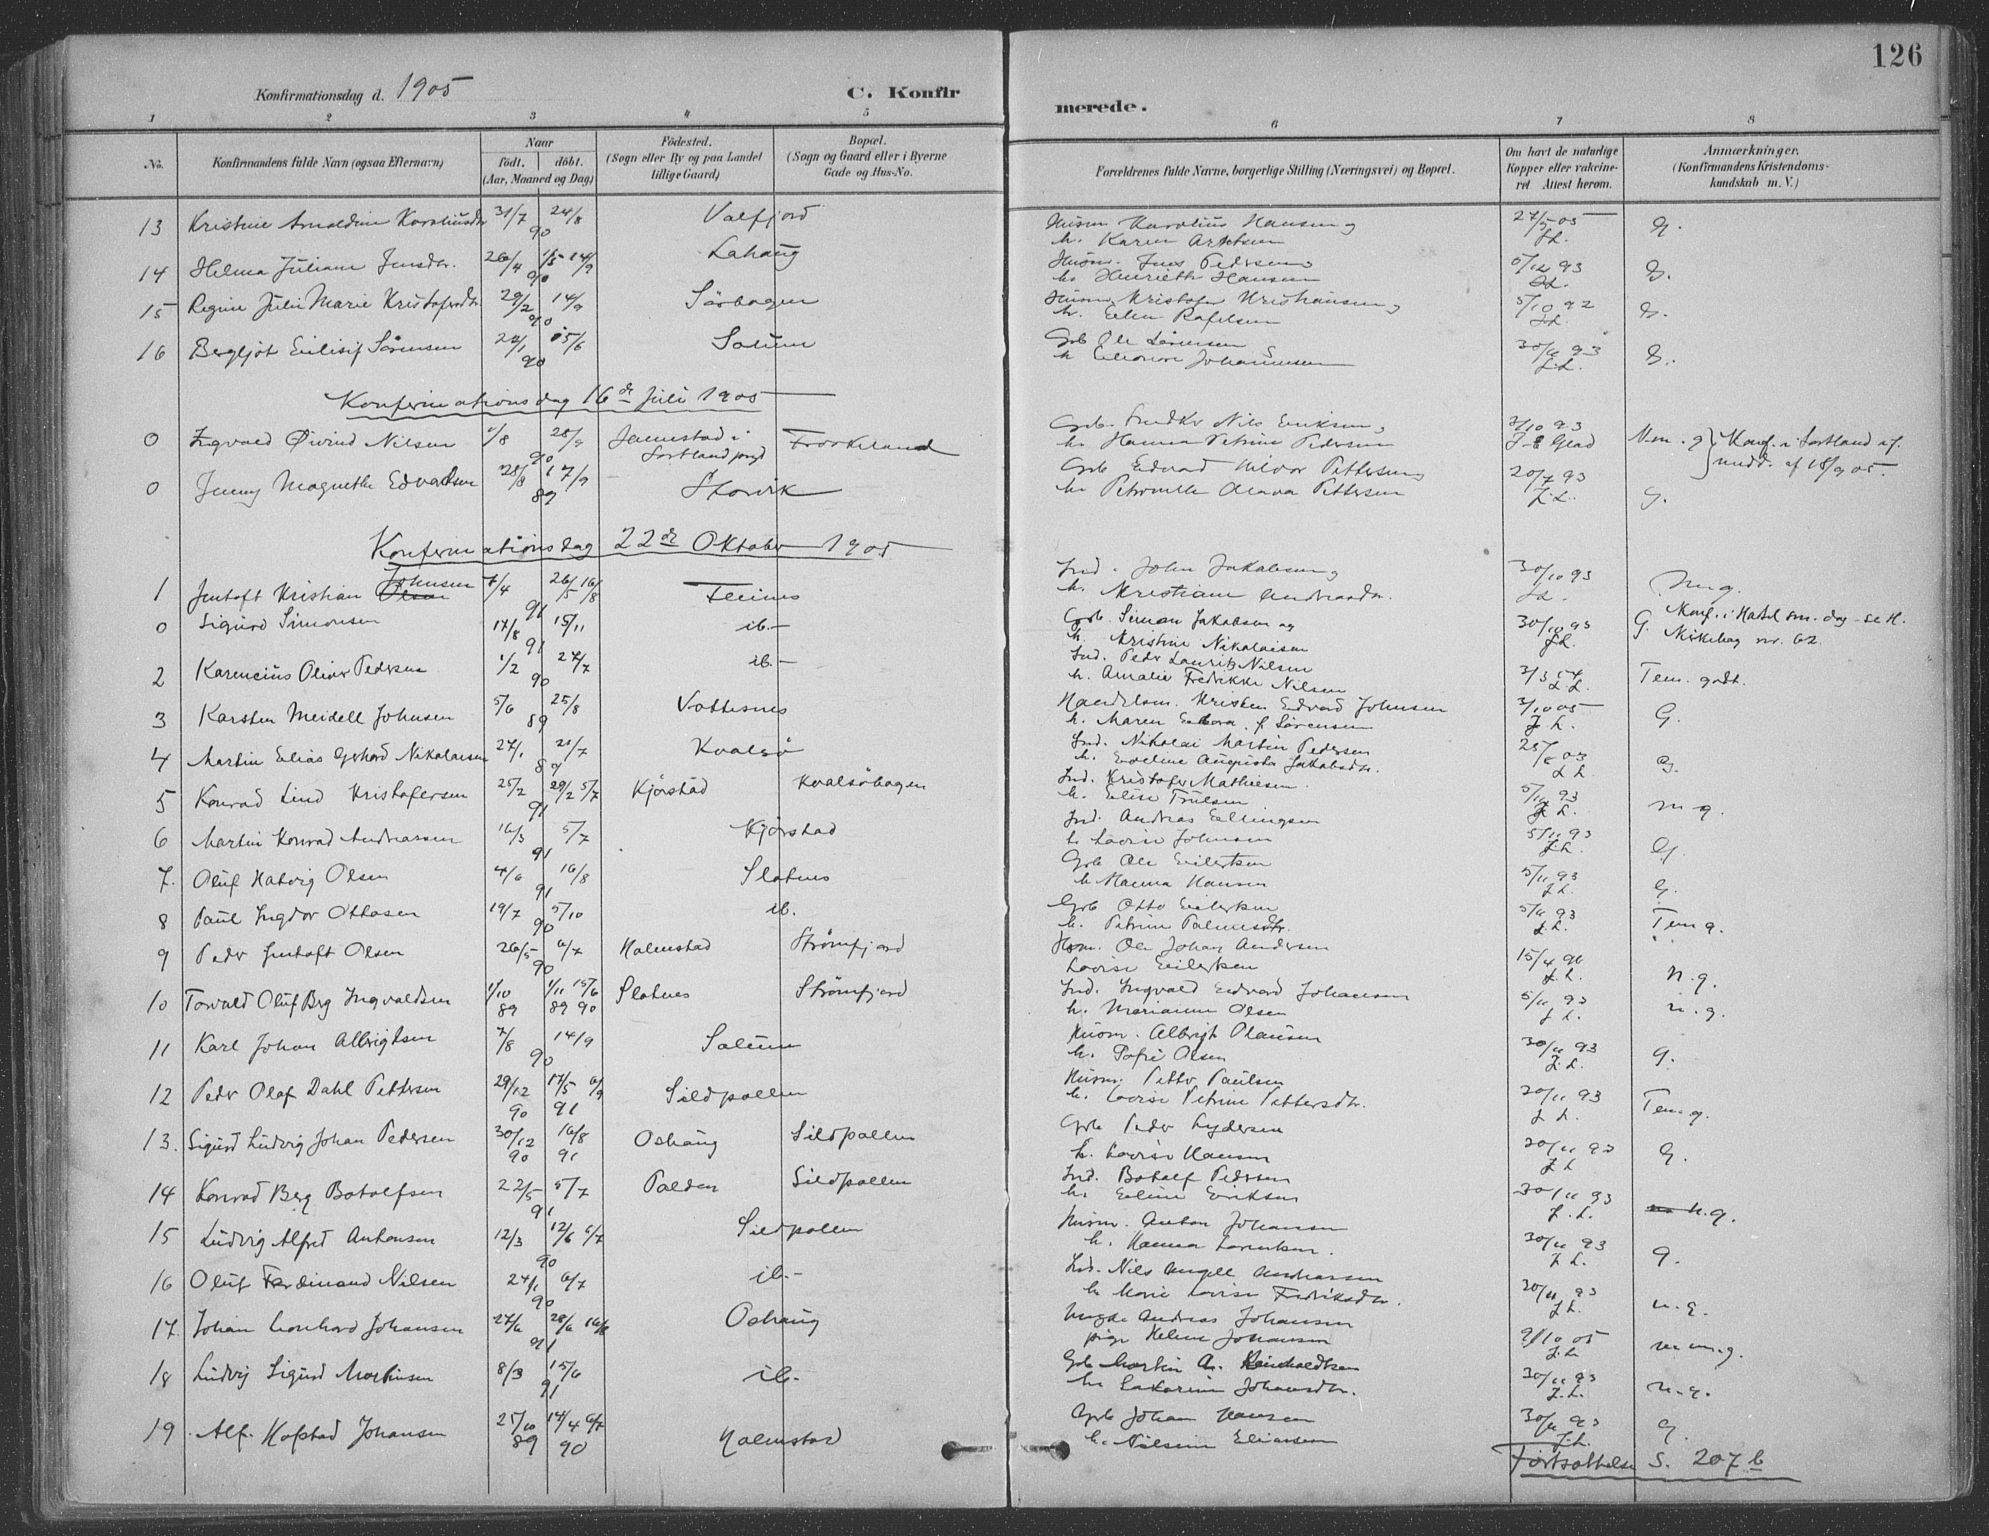 126
Konfirmationsdag d. 1905
C. Konfir
merede.
1 2 3 4 5 6 7 8
No.
Konfirmandens fulde Navn (ogsaa Efternavn)
Naar
födt. döbt.
(Aar, Maaned og Dag)
Födested.
(Sogn eller By og paa Landet
tillige Gaard)
Bopæl.
(Sogn og Gaard eller i Byerne
Gade og Hus-No.
Forældrenes fulde Navne, borgerlige Stilling (Næringsvei) og Bopæl.
Om havt de naturlige
Kopper eller vakcine-
ret Attest herom.
Anmærkninger.
(Konfirmandens Kristendoms-
kundskab m. V.)
13 Kristine Arnoldine 31/7 24/8 Valfjord Husm Karolius Hansen og 27/5 05 G.
90 h. Karen J.L.
14 Helma Juliane Jensdtr. 26/4 14/9 Lahaug Husm. Jens Pedersen 5/12 93 G.
90 h. Henriette Hansen J.L.
15 Regine Julie Marie Kristofersdtr 29/2 14/9 Sörbogen Husm. Kristofer Kristiansen 5/10 92 G.
90 h. Elen Rafelsen J.L.
16 Bergljót Eilisif Sörensen 15/6 Solum Grb Ole Sörensen 30/11 93 G.
90 h Eleonore Johannessen J.L.
Konfirmationsdag 16de Juli 1905
0 Ingvald Öivind Nilsen 1/8 28/9 Jennestad i Frøskeland Grb. Nils Eriksen 3/10 93 Konf. i Sortland af.
90 Sortland prgd h. Hanna Petrine Pedersen J. L. Glad 18/9 05.
0 Jenny Magnethe Edvardsen 28/8 17/9 Storvik Grb Edvard Hilvor Pettersen 20/7 93 G.
89 h. Petronelle Olava Pettersen J.L.
Konfirmationsdag 22de Oktober 1905
1 Jentoft Kristian Johnsen 7/4 26/5 16/8 Teines Ind. John Jakobsen 30/10 93 m g.
91 h. Kristiane Andreasdtr. J.L.
0 Sigurd Simonsen 17/8 15/11 ib.- Grb. Simon Jakobsen og 30/10 93 G. Konf. i Hatsel sm. dag - se H.
91 h. Kristine Nikolaisen J.L. Kirkebog nr. 62
2 Karencius Oliver Pedersen 1/2 27/7 ib.- Ind. Peder Lauritz Nilsen Tem. godt.
90 h. Amalie Fredrikke Nilsen J.L.
3 Karsten Meidell Johnsen 5/6 25/8 Vottesnes Handelsm. Kristen Edvard Johnsen 3/10 05 G
89 h. Maren f. Sörensen J.L.
4 Martin Elias Gerhard Nikolaisen 27/1 21/7 Kvalsø Ind. Nikolai Martin Pedersen G.
89 h. Eveline Augusta Jakobsdtr. J.L.
5 Konrad Lind Kristofersen 25/2 29/2 5/7 Kjörstad Kvalsöbogen Ind. Kristofer Mathiesen 5/11 93 m g.
91 h. Elise Trulsen J.L.
6 Martin Konrad Andreassen 16/3 5/7 Kjörstad Ind. Andreas Ellingsen 5/11 93 G
91 h Lovise Johnsen J.L.
7. Oluf Hatvig Olsen 4/6 16/8 Slotnes Grb Ole Eilertsen 5/11 93 G.
91 h Hanna Hansen J.L.
8 Paul Ingvor Ottosen 19/7 5/10 ib. Grb Otto Eilertsen 5/11 93 Tem g.
90 h. Petrine Palmesdtr. J.L.
9 Peder Jentoft Olsen 26/5 6/7 Holmstad Strömfjord Hsm. Ole Johan Andersen 15/4 96 n. g.
90 Lovise Eilertsen J.L.
10 Torvald Oluf Berg Ingvaldsen 1/10 1/11 15/6 Slotnes Strömfjord Ind. Ingvald Edvard Johansen 5/11 93 n. g.
89 89 90 h. Marianne Olsen J.L.
11 Karl Johan Albrigtsen 7/8 14/9 Solum Husm. Albrigt Olausen 30/11 93 g.
90 h. Sofie Olsen J.L.
12 Peder Olaf Dahl Pettersen 29/12 17/5 6/9 Sildpollen Husm. Petter Paulsen 20/11 93 Tem g.
90 91 h. Lovise Petrine Pettersdtr. J.L.
13. Sigurd Ludvig Johan Pedersen 30/12 16/8 Oshaug Sildpollen Grb Peder Lydersen 20/11 93 G.
90 91 h. Lovise Hansen J.L.
14 Konrad Berg Botolfsen 22/5 5/7 Polden Sildpollen Ind. Botolf Pedersen 30/11 93 n.g.
91 h. Eline Eriksen J.L.
15 Ludvig Alfred Antonsen 12/3 12/6 6/7 Sildpollen Husm. Anton Johansen 30/11 93 g.
90 h. Hanna Lorentsen. J.L.
16 Oluf Ferdinand Nilsen 24/1 6/7 ib.- Ind. Nils Angell Andreassen 30/11 93 n.g.
90 h Marie Lovise Fredriksdtr. J.L.
17 Johan Leonhard Johansen 27/6 28/6 16/8 Oshaug Ungk. Andreas Johansen 9/10 05 m.g.
91 pige Helene Johansen J.L.
18 Ludvig Sigurd Martinsen 8/3 15/6 ib. Grb Martin A. Reinholdtsen 30/11 93 n.g.
91 h. Johansdtr. J.L.
19 Alf. Hofstad Johansen 25/10 14/4 6/7 Holmstad Grb Johan Hansen 30/11 93 g.
89 90 h. Nilsine Eliassen J.L.
Fortsættelse S. 207 b